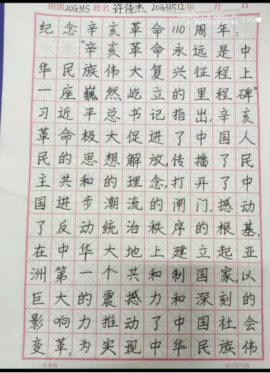 班级204315 姓名 许传杰 20431512 年 月 日
纪念辛亥革命110周年:
"辛亥革命永远是中
华民族伟大复兴征程上
一座巍然屹立的里程碑"
习近平总书记指出,辛亥
革命极大促进了中国人
民的思想解放传播了民
主共和的理念,打开了中
国进步潮流的闸门,撼动
了反动统治秩序的根基,
在中华大地上建立起亚
洲第一个共和制国家,以
巨大的震撼力和深刻的
影响力推动了中国社会
变革,为实现中华民族伟